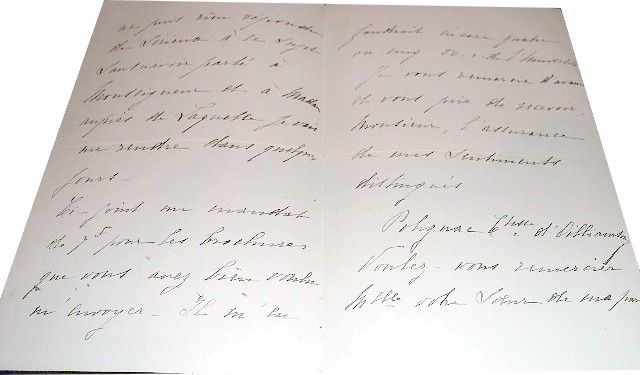 ne puis rien répondre
de sérieux à ce sujet
sans avoir parlé à
Monseigneur et à Madame
auprès de laquelle je vais
me rendre dans quelques
jours -
Ci-joint un mandat
de 7f pour les brochures
que vous avez bien voulu
m'envoyer - Il m'en
faudrait encore quatre
ou cinq ex. de l'
Je vous remercie d'avance
et vous prie de recevoir,
Monsieur, l'assurance
de mes sentiments
distingués
Polignac Ctesse d'
Voulez-vous remercier
Melle votre Soeur de ma part